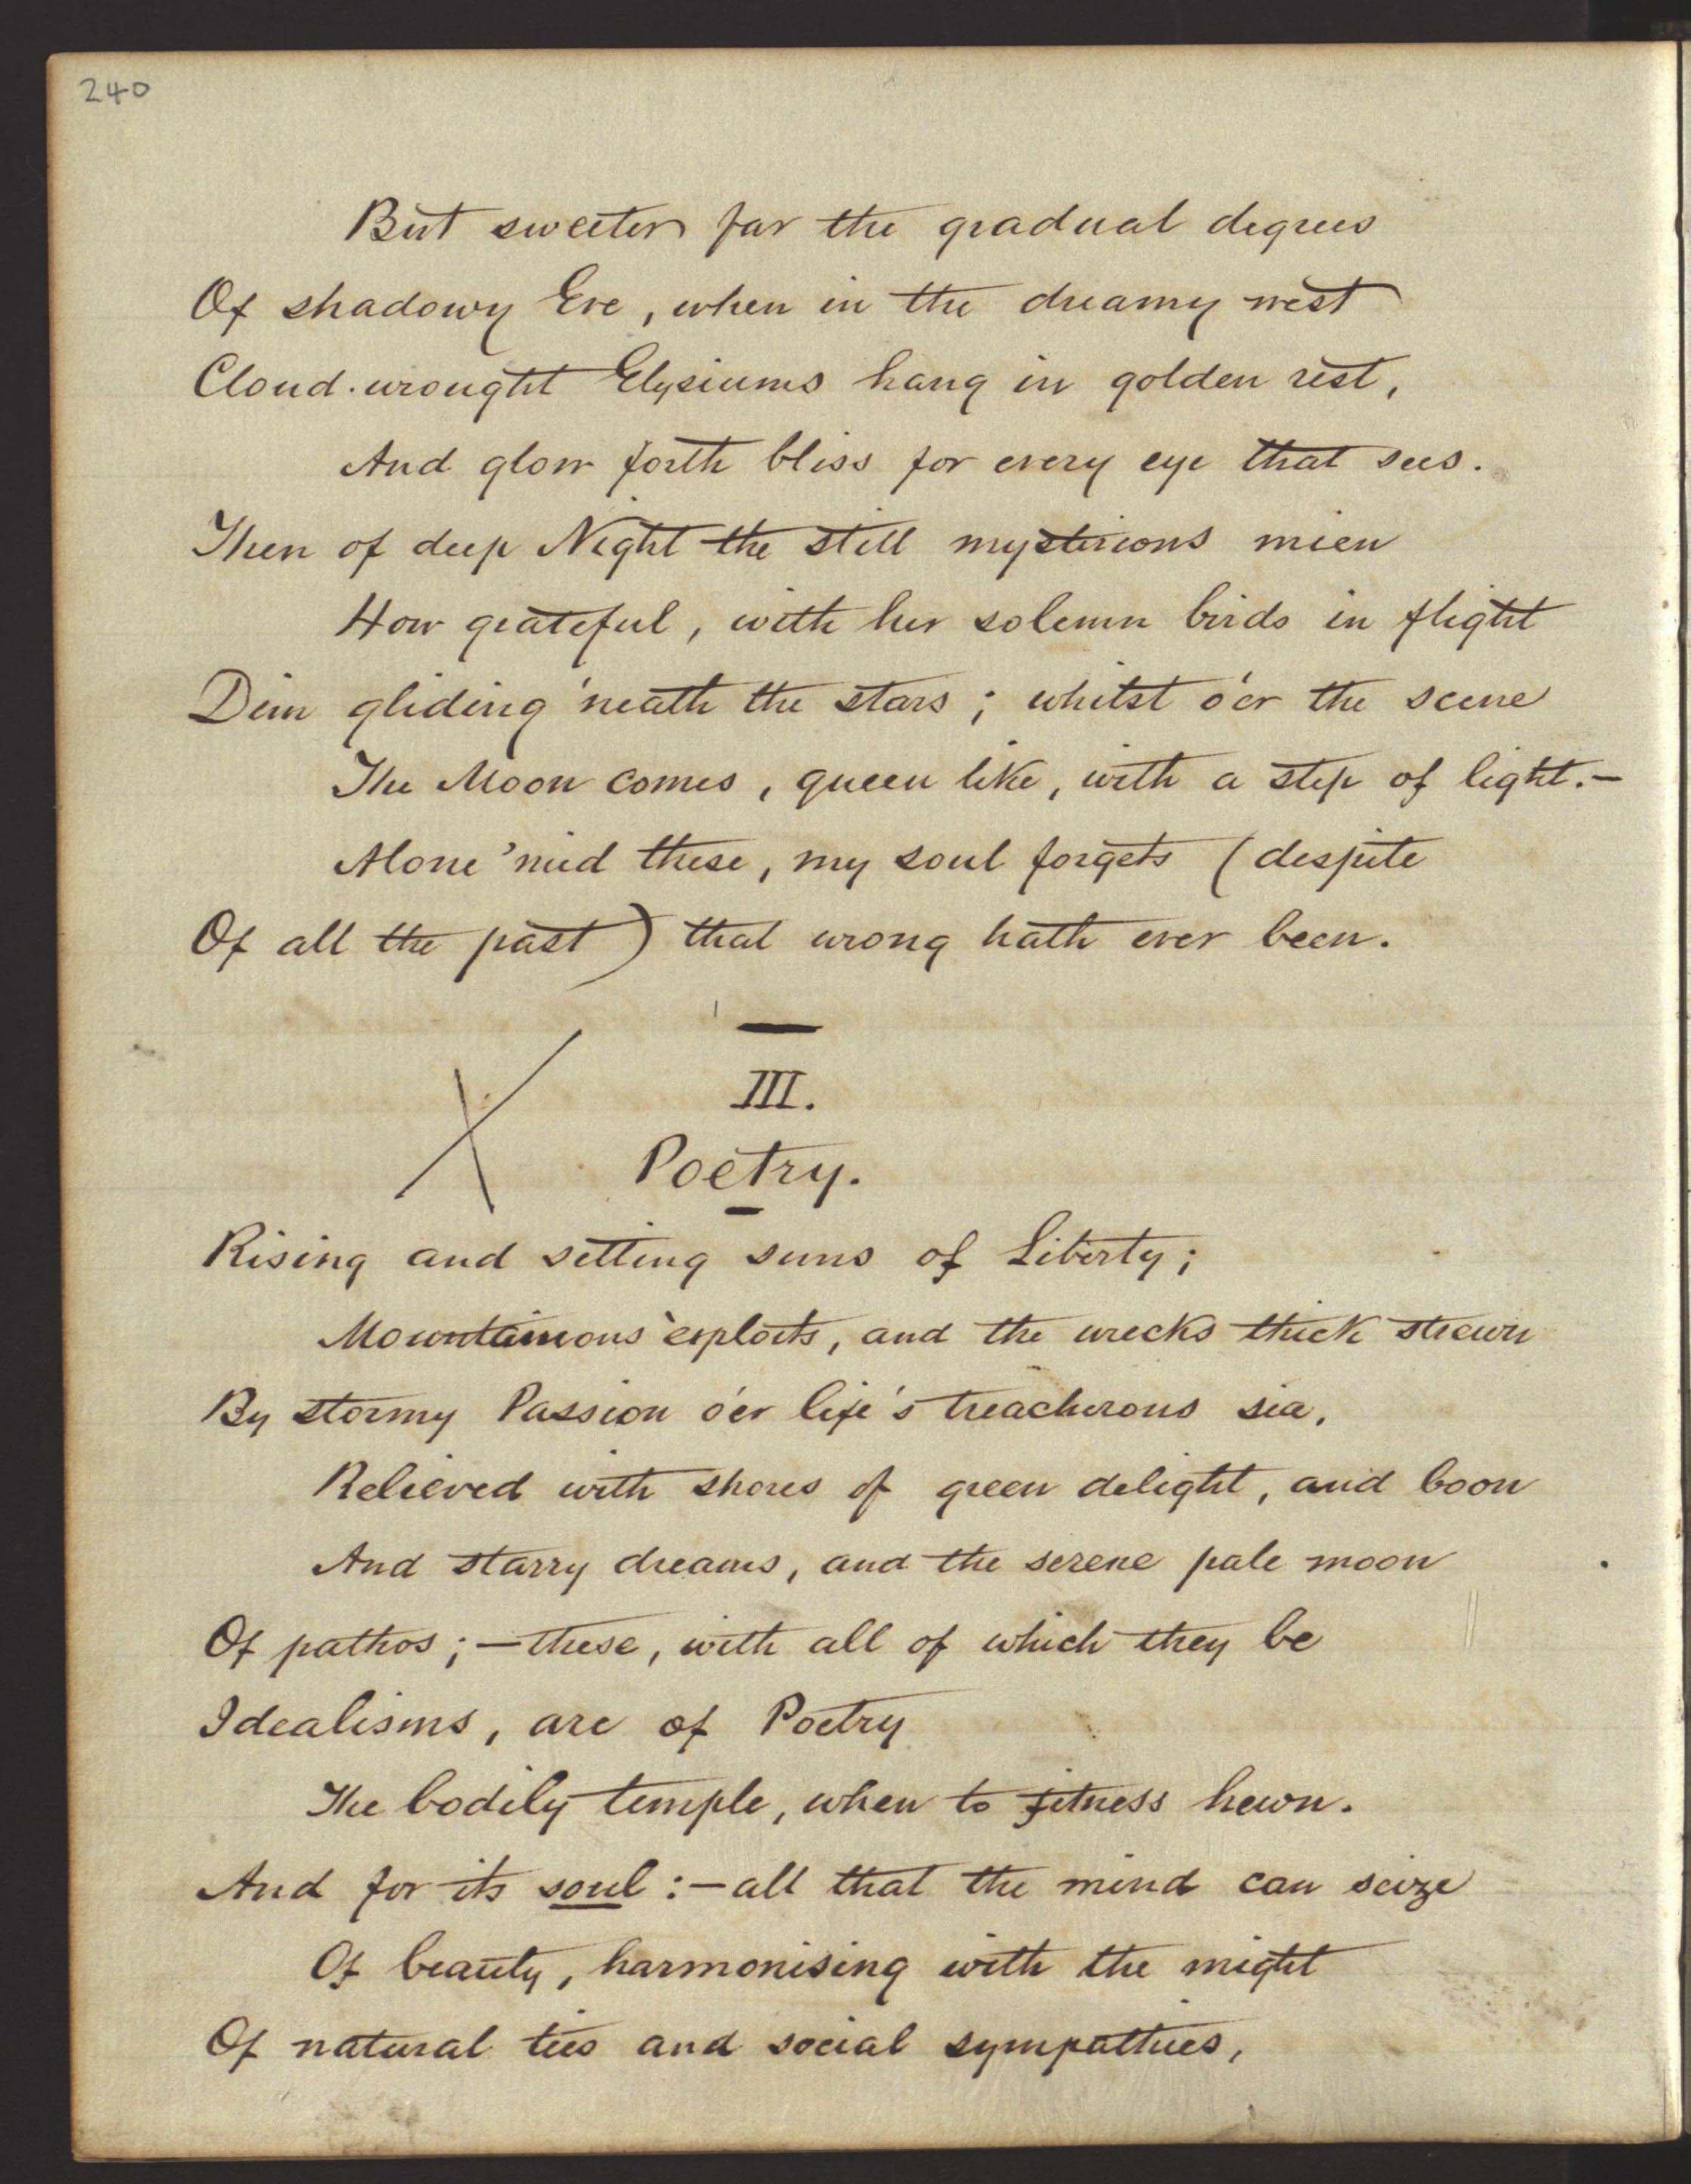 240
But sweeter far the gradual degrees
Of shadowy Eve, when in the dreamy west
Cloud-wrought Elysiums hang in golden rest,
And glow forth bliss for every eye that sees.
Then of deep Night the still mysterious mien
How grateful, with her solemn birds in flight
Dim gliding 'neath the stars; whilst o'er the scene
The Moon comes, queen like, with a step of light.—
Alone 'mid these, my soul forgets (despite
Of all the past) that wrong hath ever been.
III.
Poetry.
Rising and setting suns of Liberty;
Mountainous exploits, and the wrecks thick strewn
By stormy Passion o'er life's treacherous sea,
Relieved with shores of green delight, and boon
And starry dreams, and the serene pale moon
Of pathos;—these, with all of which they be
Idealisms, are of Poetry
The bodily temple, when to fitness hewn.
And for its soul:—all that the mind can seize
Of beauty, harmonising with the might
Of natural ties and social sympathies,